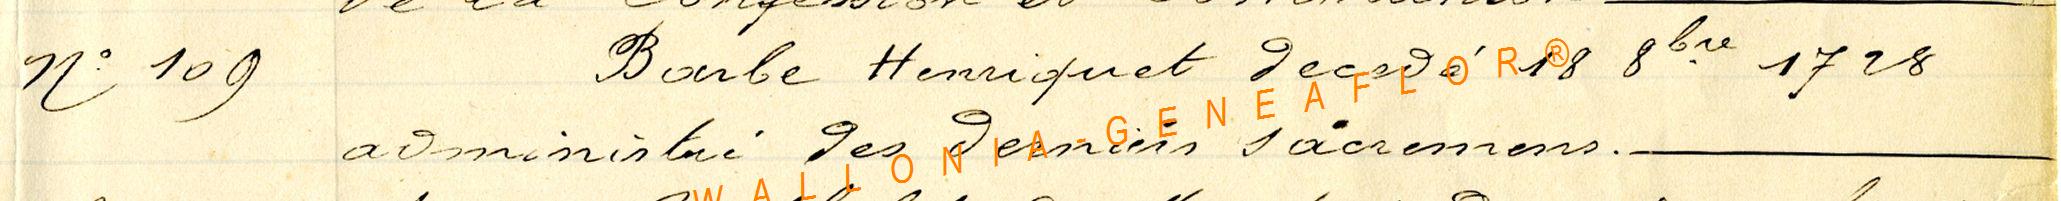 de la Confession et Communion
N° 109 Barbe Henriquet decedé 18 8bre 1728
administré des derniers sacremens.
WALLONIA-GENEAFLOR®